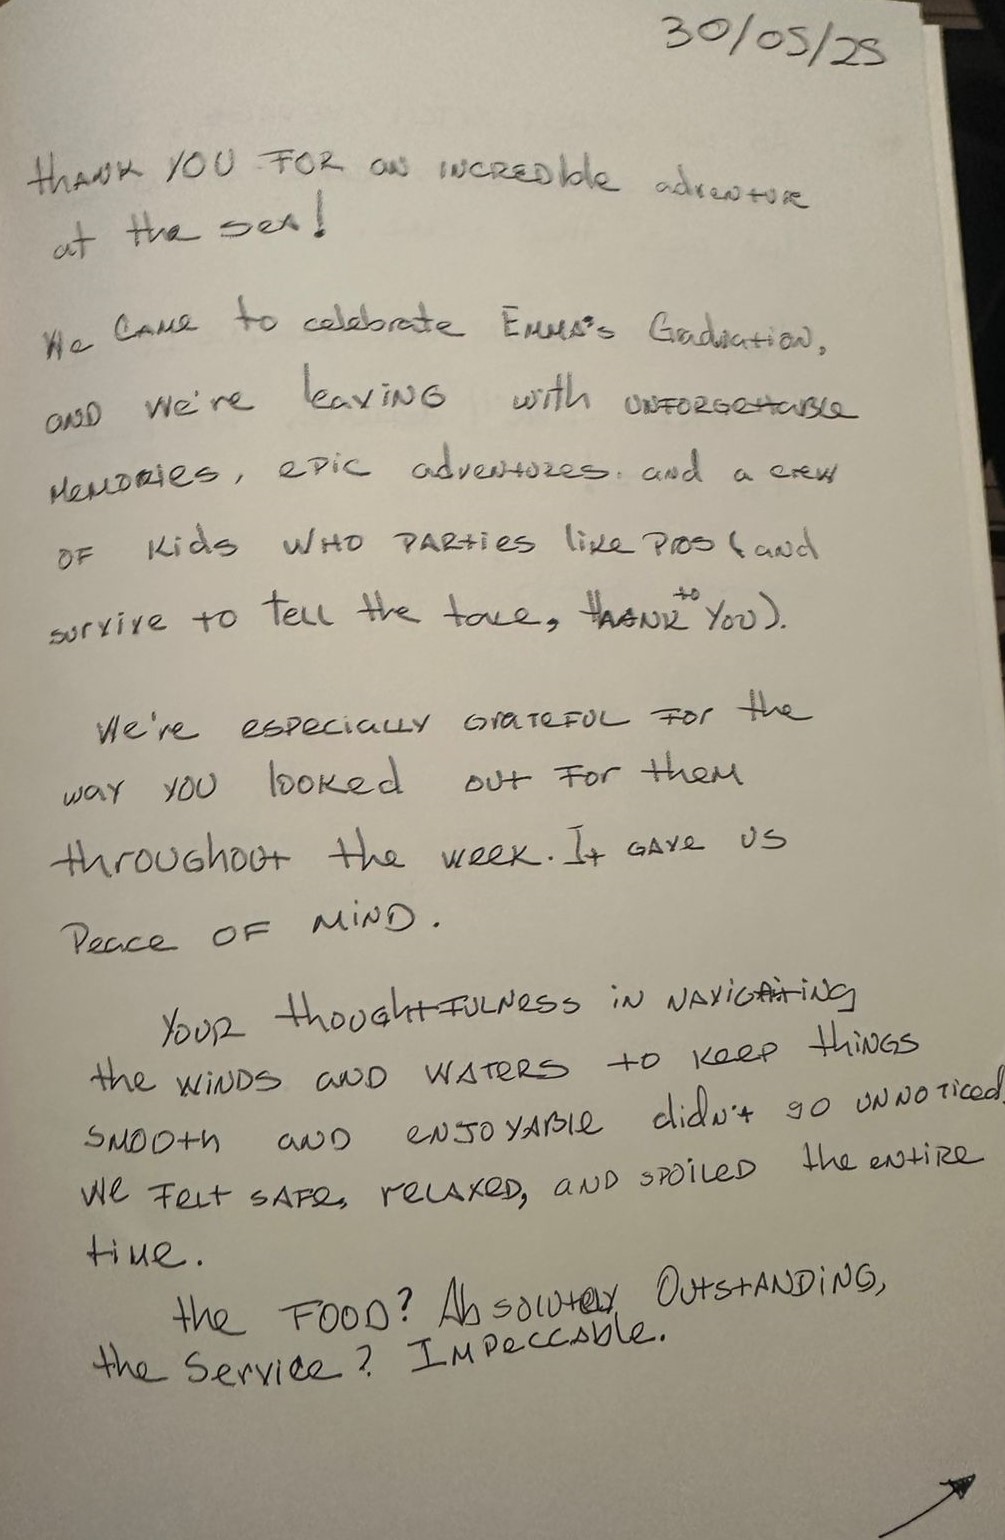 30/05/25
thANK YOU FOR an INCREDIble adventure
at the sea!
We CAME to celebrate EMMA's Graduation,
AND we're leaving with UNFORGettable
MeMORies, ePic adventures. and a crew
OF Kids WHO PARties like Pros (and
survive to tell the tale, thANK to YOU).
We're esPecially GrateFUL For the
way YOU looked out For them
throughout the week. It GAVE US
Peace OF MiND.
YOUR thoughtFULNess iN NAVIGAtiNg
the WiNDS AND WATERS to KeeP thiNGS
SMOOth AND eNJOYABle didn't go UNNOTiced.
We Felt SAFe, relAXeD, AND sPoileD the eNtiRe
tiMe.
the FOOD? AbsolUtely OUtstANDiNG,
the Service? IMPeccAble.